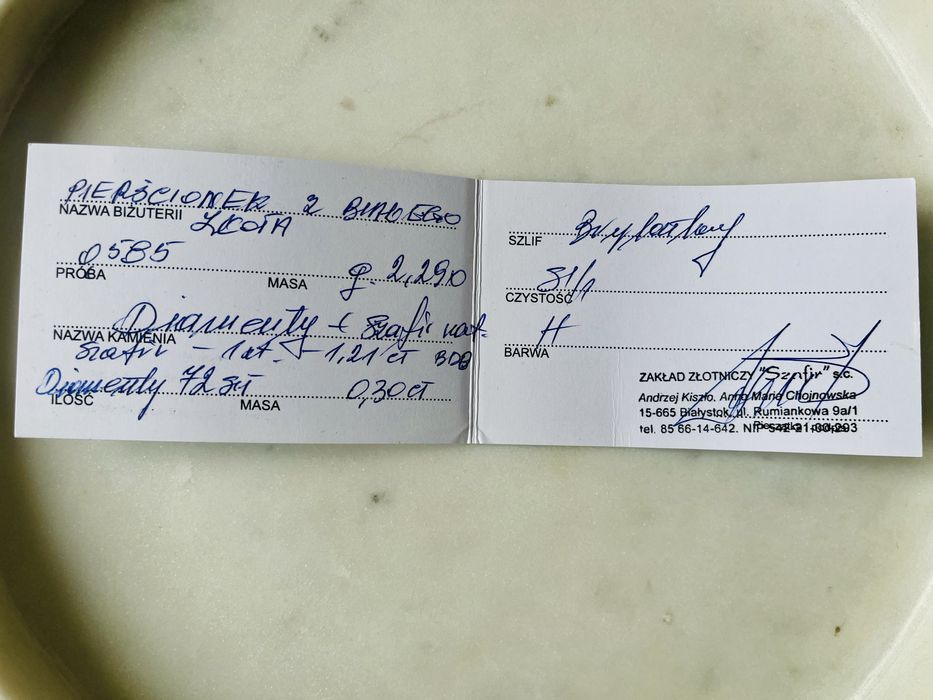 PIERŚCIONEK Z BIAŁEGO
NAZWA BIŻUTERII ZŁOTA
0585
PRÓBA MASA g. 2,290
Diamenty + Szafir nat.
NAZWA KAMIENIA
Szafir - 1 szt. - 1,21 ct BDB
Diamenty 72 szt 0,30 ct
ILOŚĆ MASA
SZLIF Brylantowy
CZYSTOŚĆ SI/1
BARWA H
ZAKŁAD ZŁOTNICZY "Szafir" s.c.
Andrzej Kiszło, Anna Maria Chojnowska
15-665 Białystok, ul. Rumiankowa 9a/1
tel. 85 66-14-642. NIP 542-21-00-293
Pieczątka i podpis